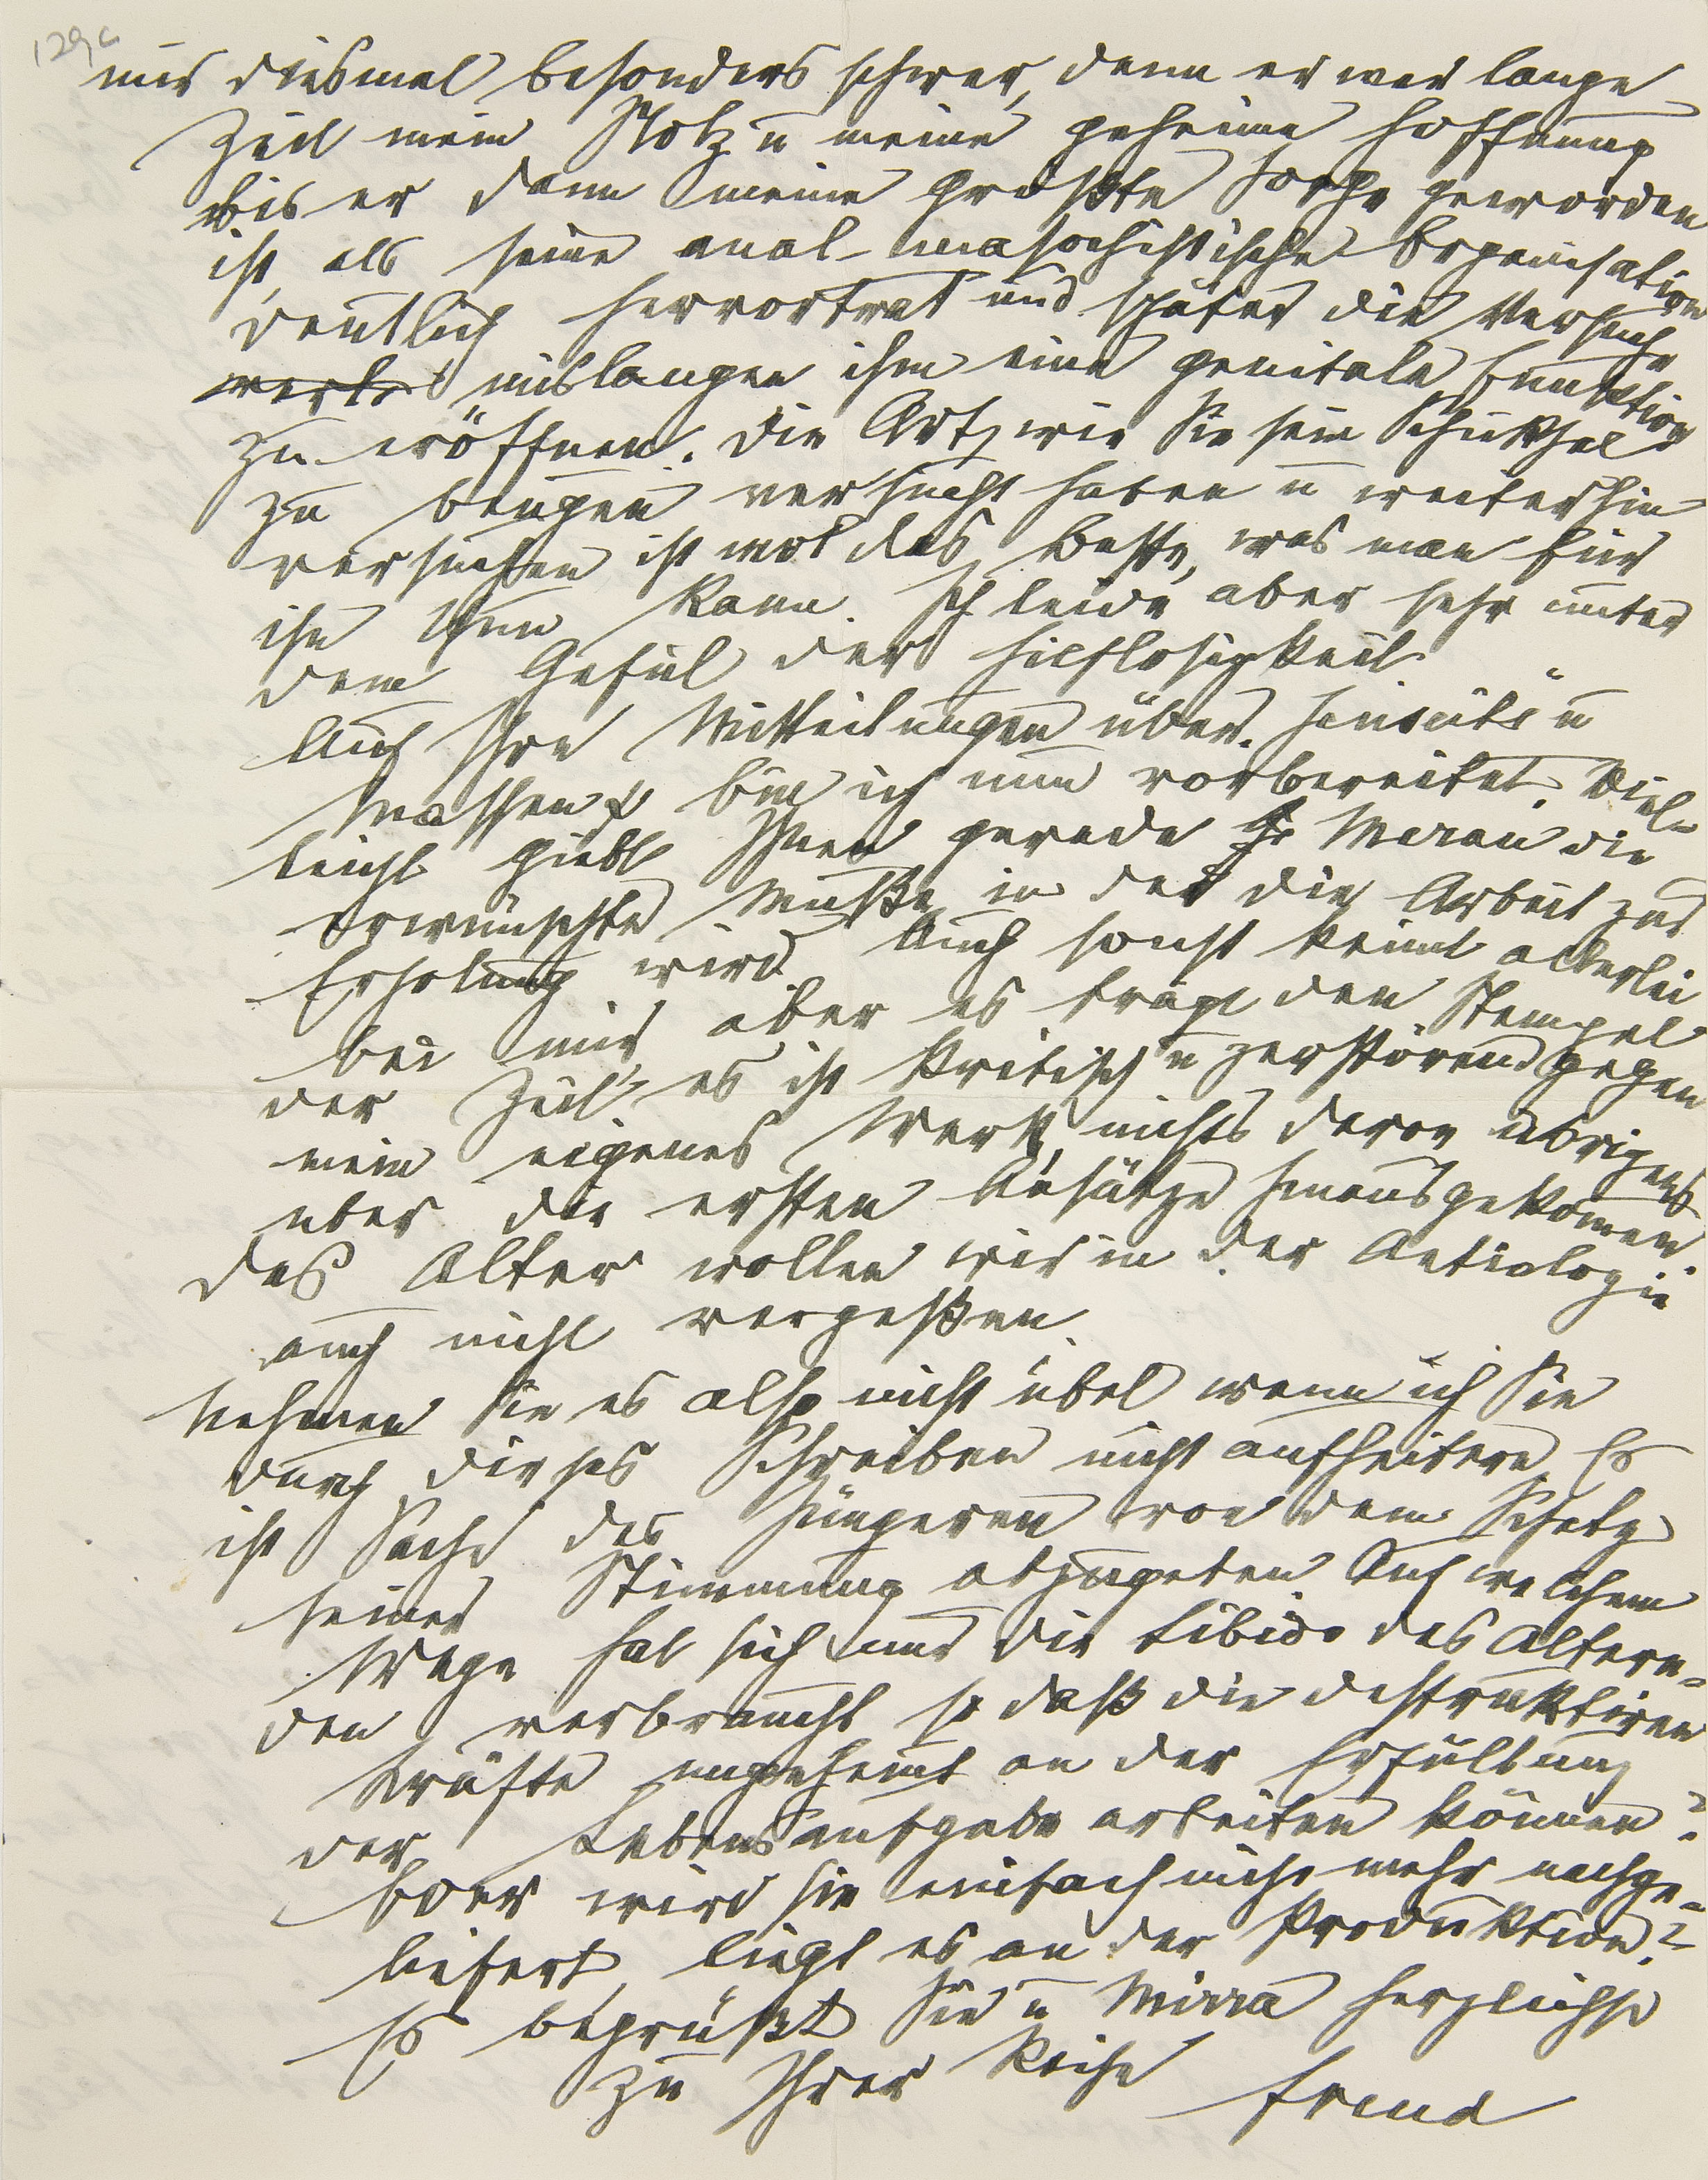 129c
mir diesmal besonders schwer, denn er war lange
Zeit mein Stolz u meine geheime Hoffnung
bis er dann meine größte Sorge geworden
ist, als seine anal-masochistische Organisation
deutlich hervortrat und später die Versuche
mislangen ihm eine genitale Funktion
zu eröffnen. Die Art, wie Sie sein Schicksal
zu beugen versucht haben u weiterhin
versuchen ist wol das Beste, was man für
ihn thun kann. Ich leide aber sehr unter
dem Gefül der Hilflosigkeit.
Auf Ihre Mitteilungen über
bin ich nun vorbereitet. Viel-
leicht giebt Ihnen gerade Meran die
erwünschte Muße in der die Arbeit zur
Erholung wird. Auch sonst keimt allerlei
bei mir aber es trägt den Stempel
der Zeit, es ist kritisch u zerstörend gegen
mein eigenes Werk, nichts davon übrigens
über die ersten Ansätze hinausgekommen.
Das Alter wollen wir in der Aetiologie
auch nicht vergeßen.
Nehmen Sie es also nicht übel wenn ich Sie
durch dieses Schreiben nicht aufheitere. Es
ist Sache des Jüngeren von dem Schatz
seiner Stimmung abzugeben. Auf welchem
Wege hat sich nur die Libido des Altern-
den verbraucht so daß die destruktiven
Kräfte ungehemt an der Erfüllung
der Lebensaufgabe arbeiten können?
Oder wird sie einfach nicht mehr nachge-
liefert, liegt es an der Produktion?
Es begrüßt Sie u Mirra herzlichst
zu Ihrer Reise Freud